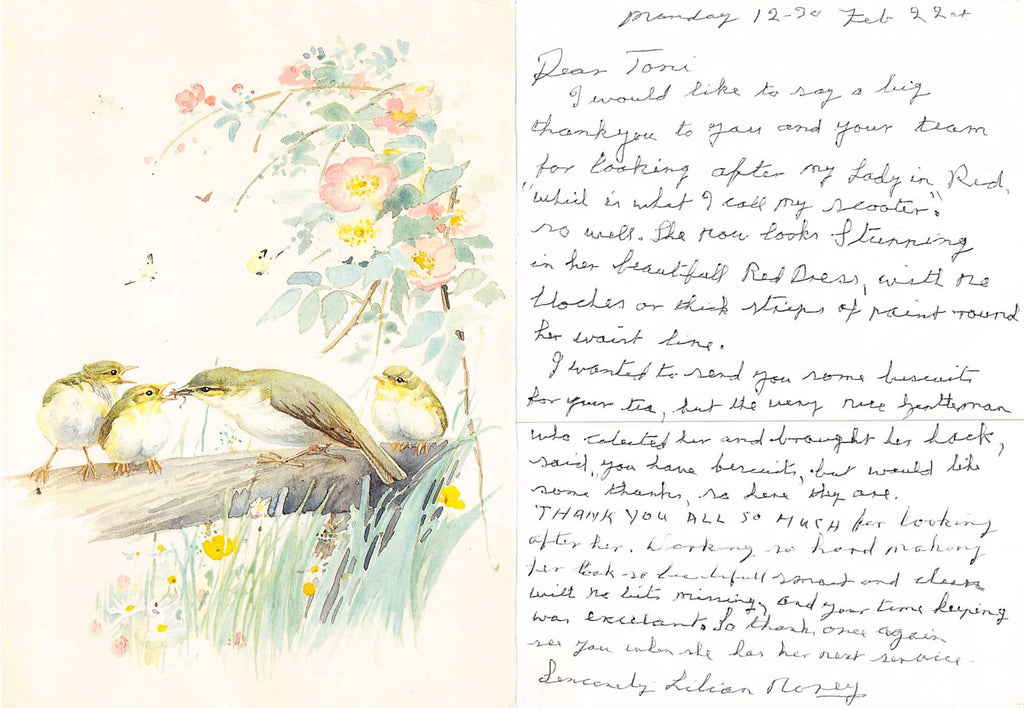 Monday 12-30 Feb 22st
Dear Toni
I would like to say a big
thankyou to you and your team
for looking after my Lady in Red,
"which is what I call my scooter".
so well. She now looks Stunning
in her beautifull Red Dress, with no
bloches or thick strips of paint round
her waist line.
I wanted to send you some buscuits
for your tea, but the very nice Gentleman
who colected her and brought her back,
said, you have buscuits, but would like
some thanks, so here they are.
THANK YOU ALL SO MUCH for looking
after her. Working so hard making
her look so beautifull smart and clean
with no bits missing, and your time keeping
was excelant. So thank once again
see you when she has her next service.
Sencerely Lilian